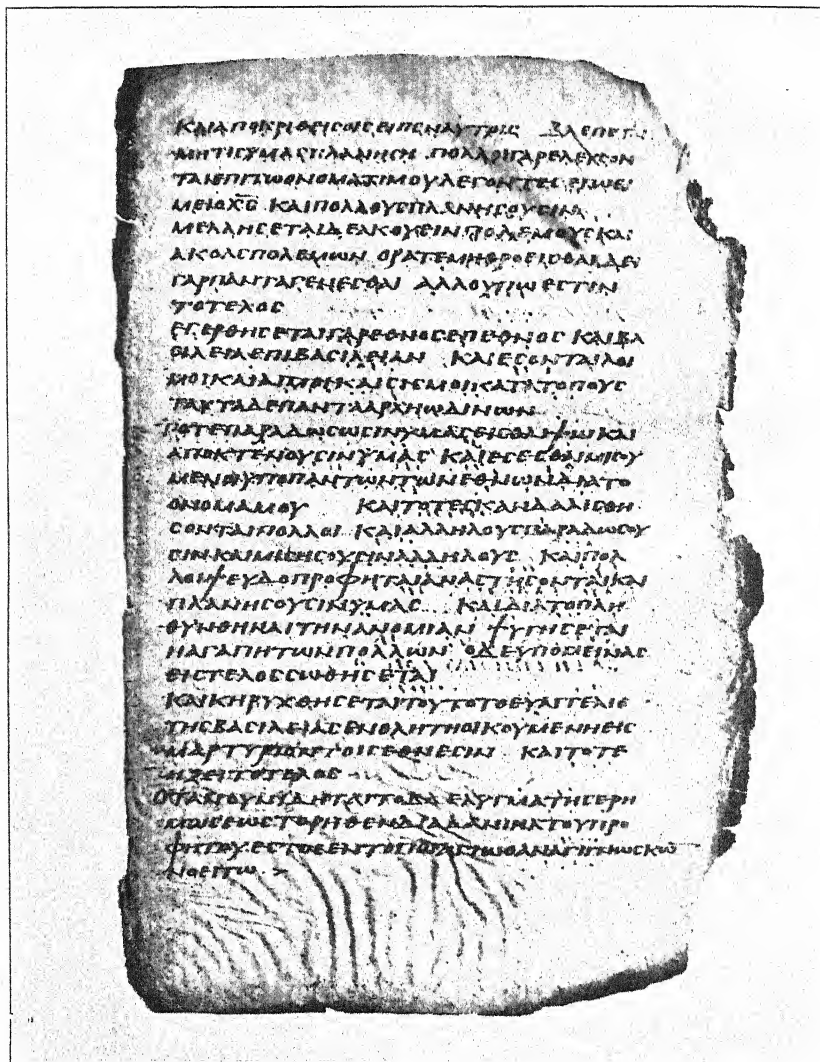 ΚΑΙΑΠΟΚΡΙΘΕΙϹΟΙϹΕΙΠΕΝΑΥΤΟΙϹ ΒΛΕΠΕΤΕ
ΜΗΤΙϹΥΜΑϹΠΛΑΝΗϹΗ ΠΟΛΛΟΙΓΑΡΕΛΕΥϹΟΝ
ΤΑΙΕΠΙΤΩΟΝΟΜΑΤΙΜΟΥΛΕΓΟΝΤΕϹ ΕΓΩΕΙ
ΜΕΙΟΧ̅Ϲ̅ ΚΑΙΠΟΛΛΟΥϹΠΛΑΝΗϹΟΥϹΙΝ
ΜΕΛΛΗϹΕΤΑΙΔΕΑΚΟΥΕΙΝ ΠΟΛΕΜΟΥϹΚΑΙ
ΑΚΟΑϹΠΟΛΕΜΩΝ ΟΡΑΤΕΜΗΘΡΟΕΙϹΘΑΙΔΕΙ
ΓΑΡΠΑΝΤΑΓΕΝΕϹΘΑΙ ΑΛΛΟΥΠΩΕϹΤΙΝ
ΤΟΤΕΛΟϹ
ΕΓΕΡΘΗϹΕΤΑΙΓΑΡΕΘΝΟϹΕΠΕΘΝΟϹ ΚΑΙΒΑ
ϹΙΛΕΙΑΕΠΙΒΑϹΙΛΕΙΑΝ ΚΑΙΕϹΟΝΤΑΙΛΟΙ
ΜΟΙΚΑΙΛΙΜΟΙΚΑΙϹΙϹΜΟΙΚΑΤΑΤΟΠΟΥϹ
ΤΑΥΤΑΔΕΠΑΝΤΑΑΡΧΗΩΔΙΝΩΝ
ΤΟΤΕΠΑΡΑΔΩϹΩϹΙΝΥΜΑϹΕΙϹΘΛΙΨΙΝΚΑΙ
ΑΠΟΚΤΕΝΟΥϹΙΝΥΜΑϹ ΚΑΙΕϹΕϹΘΑΙΜΙϹΟΥ
ΜΕΝΟΙΥΠΟΠΑΝΤΩΝΤΩΝΕΘΝΩΝΔΙΑΤΟ
ΟΝΟΜΑΜΟΥ ΚΑΙΤΟΤΕϹΚΑΝΔΑΛΙϹΘΗ
ϹΟΝΤΑΙΠΟΛΛΟΙ ΚΑΙΑΛΛΗΛΟΥϹΠΑΡΑΔΩϹΟΥ
ϹΙΝΚΑΙΜΙϹΗϹΟΥϹΙΝΑΛΛΗΛΟΥϹ ΚΑΙΠΟΛ
ΛΟΙΨΕΥΔΟΠΡΟΦΗΤΑΙΑΝΑϹΤΗϹΟΝΤΑΙΚΑΙ
ΠΛΑΝΗϹΟΥϹΙΝΥΜΑϹ ΚΑΙΔΙΑΤΟΠΛΗ
ΘΥΝΘΗΝΑΙΤΗΝΑΝΟΜΙΑΝ ΨΥΓΗϹΕΤΑΙ
ΗΑΓΑΠΗΤΩΝΠΟΛΛΩΝ ΟΔΕΥΠΟΜΕΙΝΑϹ
ΕΙϹΤΕΛΟϹϹΩΘΗϹΕΤΑΙ
ΚΑΙΚΗΡΥΧΘΗϹΕΤΑΙΤΟΥΤΟΤΟΕΥΑΓΓΕΛΙΟ
ΤΗϹΒΑϹΙΛΕΙΑϹΕΝΟΛΗΤΗΟΙΚΟΥΜΕΝΗΕΙϹ
ΜΑΡΤΥΡΙΟΝΤΟΙϹΕΘΝΕϹΙΝ ΚΑΙΤΟΤΕ
ΗΞΕΙΤΟΤΕΛΟϹ
ΟΤΑΝΟΥΝΙΔΗΤΑΙΤΟΒΔΕΛΥΓΜΑΤΗϹΕΡΗ
ΜΩϹΕΩϹΤΟΡΗΘΕΝΔΙΑΔΑΝΙΗΛΤΟΥΠΡΟ
ΦΗΤΟΥΕϹΤΟϹΕΝΤΟΠΩΑΓΙΩΟΑΝΑΓΙΝΩϹΚΩ
ΝΟΕΙΤΩ >